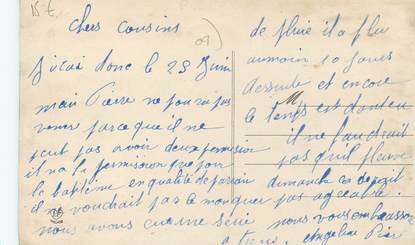 15t
09
Chers Cousins
J'irai donc le 25 Juin
mais Pierre ne pourra pas
venir parce que il ne
peut pas avoir deux permission
il n'a la permission que pour
le baptême en qualité de parrain
il ne voudrait pas le manquer
nous avons eu une
de pluie il a plu
au moins 10 jours
de suite et encore
le temps est douteux
il ne faudrait
pas qu'il pleuve
dimanche ce serait
pas agréable
nous vous embrassons
Angeline